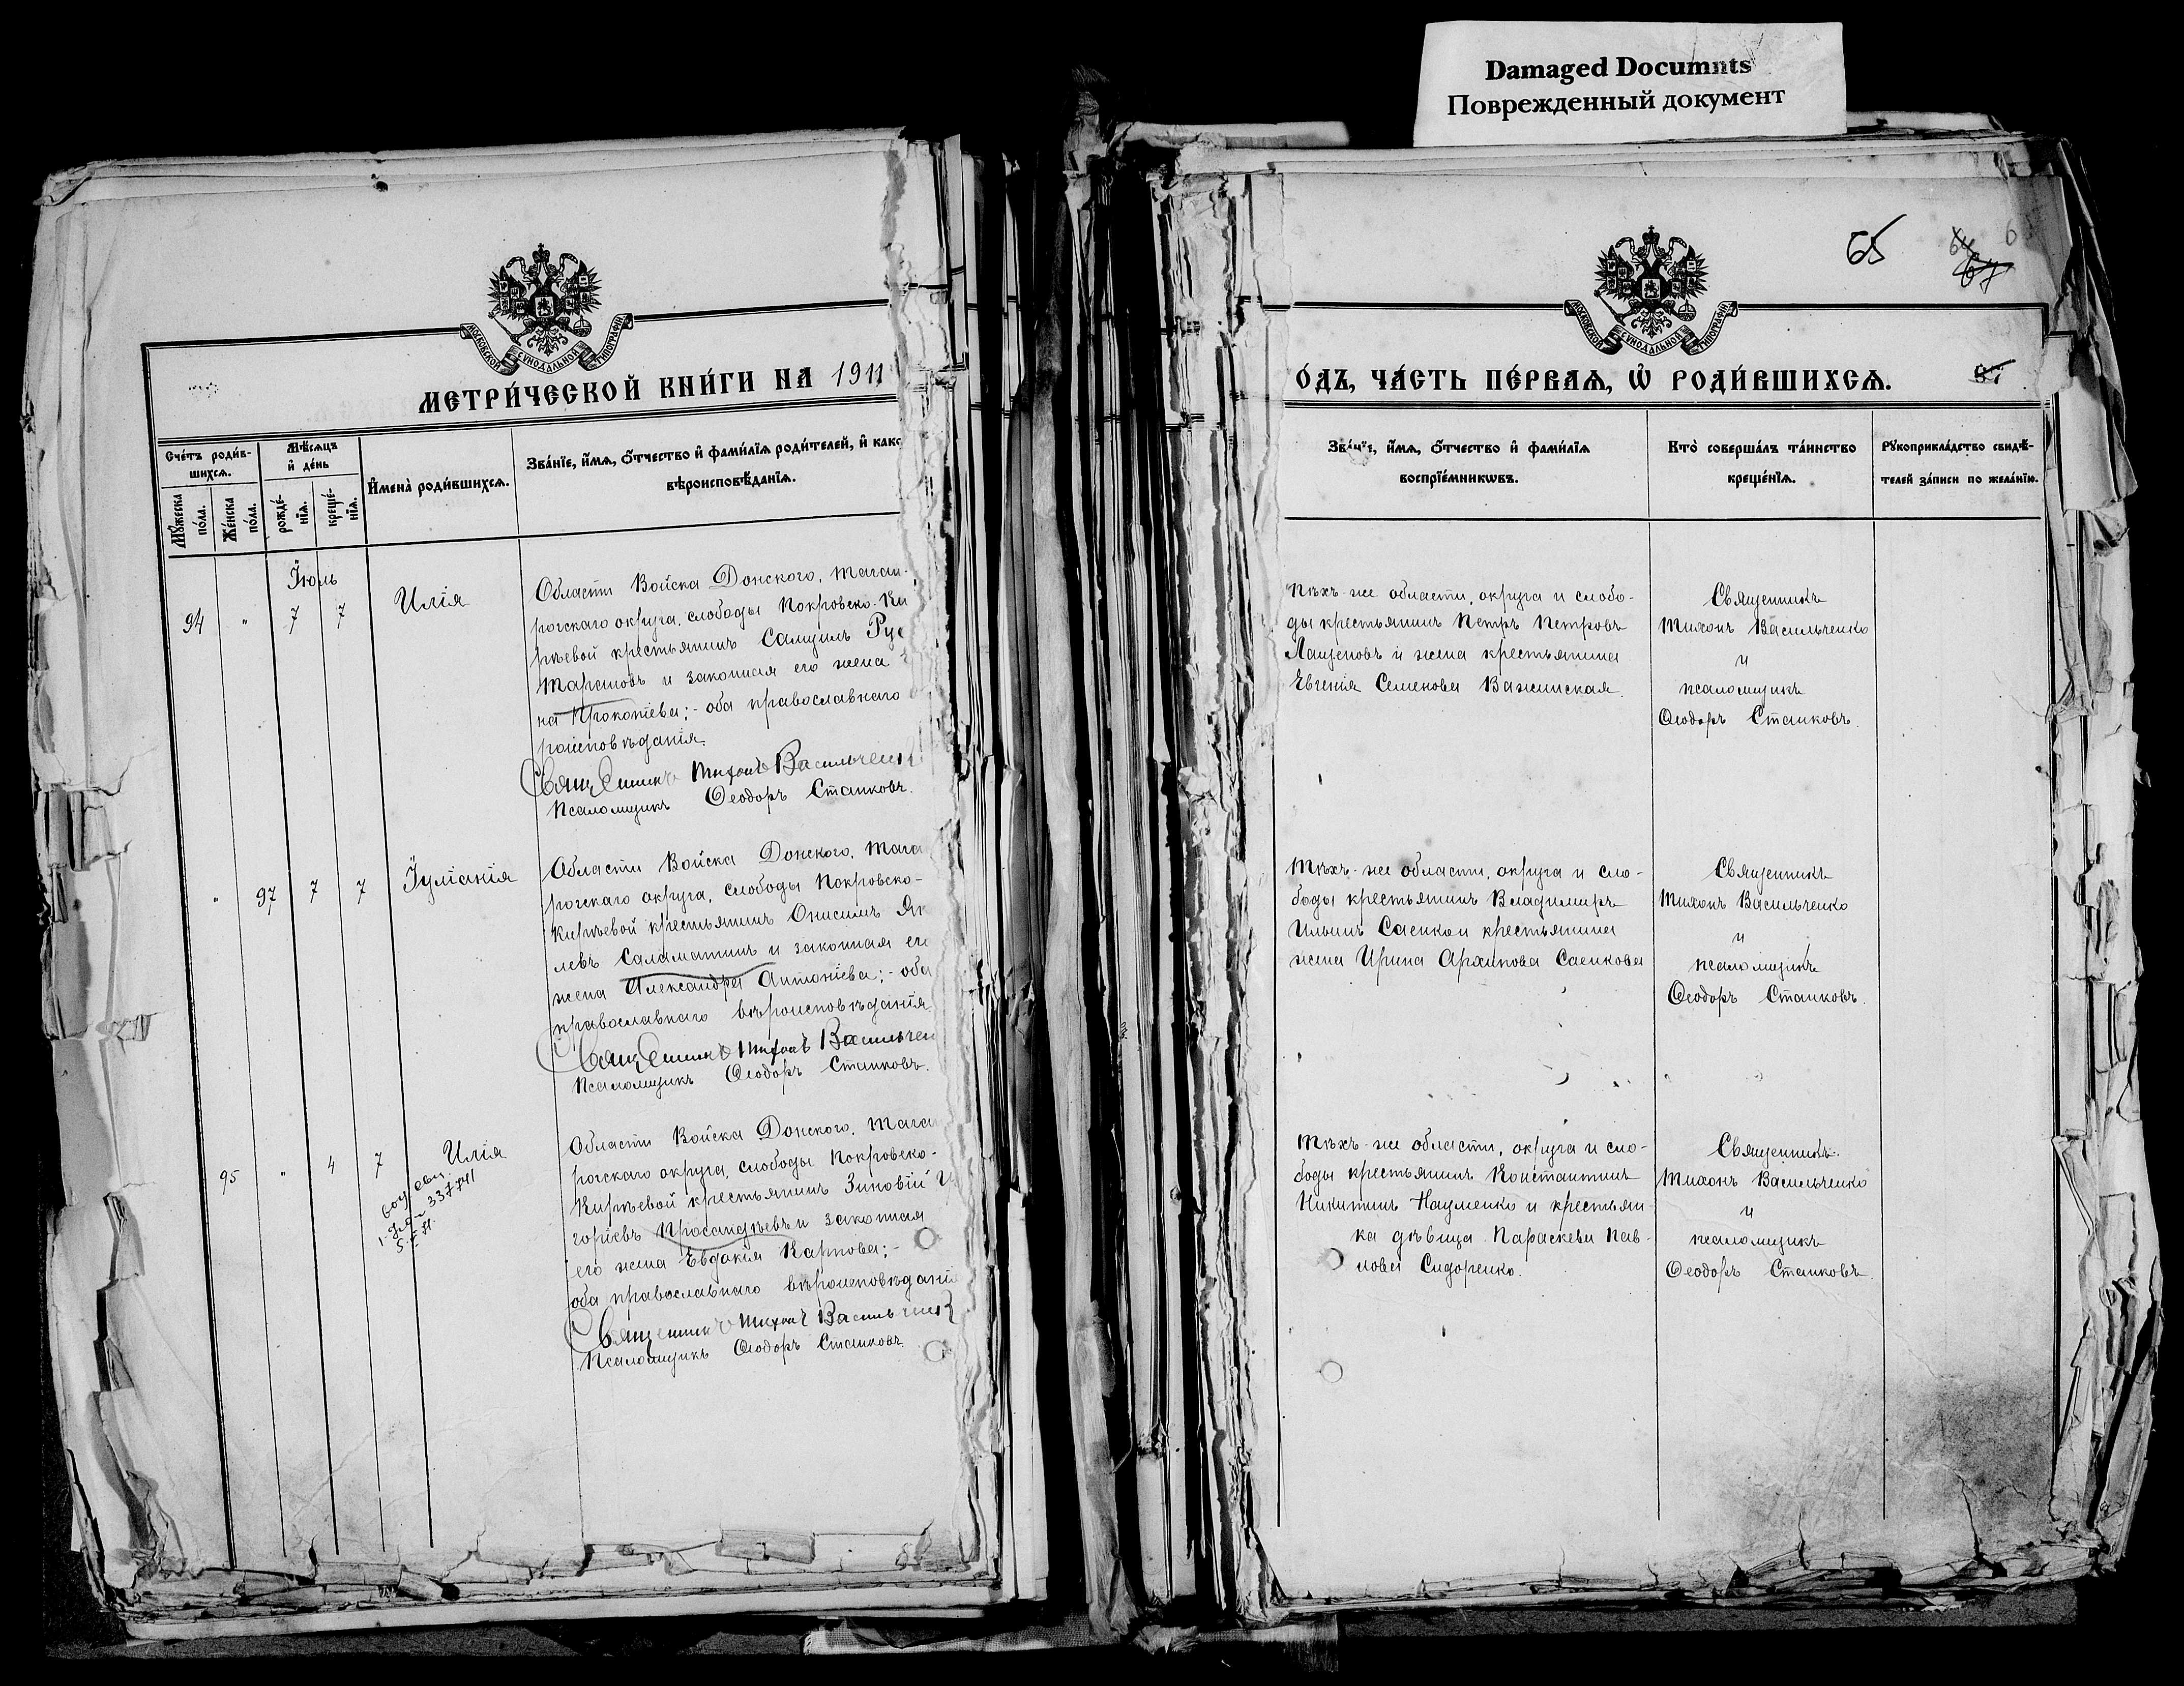 Damaged Documnts
Поврежденный документ
65
64
67
МОСКОВСКОЙ СѴНОДАЛЬНОЙ ТИПОГРАФІИ
МЕТРИ́ЧЕСКОЙ КНИ́ГИ НА 1911
Сче́тъ роди́в-
шихсѧ.
Мѣ́сѧцъ
и҆ де́нь
И҆мена̀ роди́вшихсѧ.
Зва́нїе, и҆́мѧ, ѻ҆́тчество и҆ фами́лїѧ роди́телей, и҆ како
вѣроисповѣ́данїѧ.
Мꙋ́жеска
по́ла.
Же́нска
по́ла.
рожде́-
нїѧ.
креще́-
нїѧ.
Іюль
94 " 7 7 Илія
Области Войска Донского, Таган-
рогскаго округа, слободы Покровско-Ки
рѣевой крестьянинъ Самуилъ
Тарановъ и законная его жена
на Прокопіева;- оба православнаго
роисповѣданія.
Священникъ Тихонъ Васильченк
Псаломщикъ Ѳеодоръ Станковъ.
" 97 7 7 Іуліанія
Области Войска Донского, Тага
рогскаго округа, слободы Покровско-
Кирѣевой крестьянинъ Онисимъ Як
левъ Саламатинъ и законная ег
жена Александра Антоніева;- оба
православнаго вѣроисповѣданія
Священникъ Тихонъ Васильчен
Псаломщикъ Ѳеодоръ Станковъ.
95 " 4 7 Илія
337741
Области Войска Донского, Таган
рогскаго округа, слободы Покровско-
Кирѣевой крестьянинъ Зиновій
горіевъ и законная
его жена Евдокія Карпова;-
оба православнаго вѣроисповѣданія
Священникъ Тихонъ Васильченк
Псаломщикъ Ѳеодоръ Станковъ.
МОСКОВСКОЙ СѴНОДАЛЬНОЙ ТИПОГРАФІИ
О́ДЪ, ЧА́СТЬ ПЕ́РВАѦ, Ѡ҆ РОДИ́ВШИХСѦ.
Зва́нїе, и҆́мѧ, ѻ҆́тчество и҆ фами́лїѧ
воспрїе́мникѡвъ.
Кто̀ соверша́лъ та́инство
креще́нїѧ.
Рꙋкоприкла́дство свидѣ́-
телей за́писи по жела́нїю.
Тѣхъ-же области, округа и слобо-
ды крестьянинъ Петръ Петровъ
Лащеновъ и жена крестьянина
Евгенія Семенова Важинская.
Священникъ
Тихонъ Васильченко
и
псаломщикъ
Ѳеодоръ Станковъ.
Тѣхъ-же области, округа и сло-
боды крестьянинъ Владимиръ
Ильинъ Саенко и крестьянина
жена Ирина Архипова Саенкова
Священникъ
Тихонъ Васильченко
и
псаломщикъ
Ѳеодоръ Станковъ.
Тѣхъ-же области, округа и сло-
боды крестьянинъ Константинъ
Никитинъ Науменко и крестьян-
ка дѣвица Параскева Пав-
лова Сидоренко.
Священникъ
Тихонъ Васильченко
и
псаломщикъ
Ѳеодоръ Станковъ.